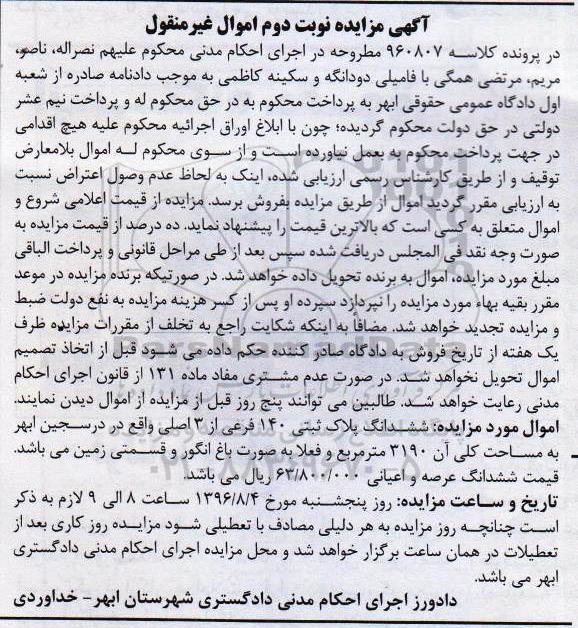 آگهی مزایده نوبت دوم اموال غیرمنقول
در پرونده کلاسه ۹۶۰۸۰۷ مطروحه در اجرای احکام مدنی محکوم علیهم نصراله، ناصر،
مریم، مرتضی همگی با فامیلی دودانگه و سکینه کاظمی به موجب دادنامه صادره از شعبه
اول دادگاه عمومی حقوقی ابهر به پرداخت محکوم به در حق محکوم له و پرداخت نیم عشر
دولتی در حق دولت محکوم گردیده؛ چون با ابلاغ اوراق اجرائیه محکوم علیه هیچ اقدامی
در جهت پرداخت محکوم به بعمل نیاورده است و از سوی محکوم له اموال بلامعارض
توقیف و از طریق کارشناس رسمی ارزیابی شده، اینک به لحاظ عدم وصول اعتراض نسبت
به ارزیابی مقرر گردید اموال از طریق مزایده بفروش برسد. مزایده از قیمت اعلامی شروع و
اموال متعلق به کسی است که بالاترین قیمت را پیشنهاد نماید. ده درصد از قیمت مزایده به
صورت وجه نقد فی المجلس دریافت شده سپس بعد از طی مراحل قانونی و پرداخت الباقی
مبلغ مورد مزایده، اموال به برنده تحویل داده خواهد شد. در صورتیکه برنده مزایده در موعد
مقرر بقیه بهاء مورد مزایده را نپردازد سپرده او پس از کسر هزینه مزایده به نفع دولت ضبط
و مزایده تجدید خواهد شد. مضافاً به اینکه شکایت راجع به تخلف از مقررات مزایده ظرف
یک هفته از تاریخ فروش به دادگاه صادر کننده حکم داده می شود قبل از اتخاذ تصمیم
اموال تحویل نخواهد شد. در صورت عدم مشتری مفاد ماده ۱۳۱ از قانون اجرای احکام
مدنی رعایت خواهد شد. طالبین می توانند پنج روز قبل از مزایده از اموال دیدن نمایند.
اموال مورد مزایده: ششدانگ پلاک ثبتی ۱۴۰ فرعی از ۳ اصلی واقع در درسجین ابهر
به مساحت کلی آن ۳۱۹۰ مترمربع و فعلا به صورت باغ انگور و قسمتی زمین می باشد.
قیمت ششدانگ عرصه و اعیانی ۶۳/۸۰۰/۰۰۰ ریال می باشد.
تاریخ و ساعت مزایده: روز پنجشنبه مورخ ۱۳۹۶/۸/۴ ساعت ۸ الی ۹ لازم به ذکر
است چنانچه روز مزایده به هر دلیلی مصادف با تعطیلی شود مزایده روز کاری بعد از
تعطیلات در همان ساعت برگزار خواهد شد و محل مزایده اجرای احکام مدنی دادگستری
ابهر می باشد.
دادورز اجرای احکام مدنی دادگستری شهرستان ابهر- خداوردی
ParsNamadData